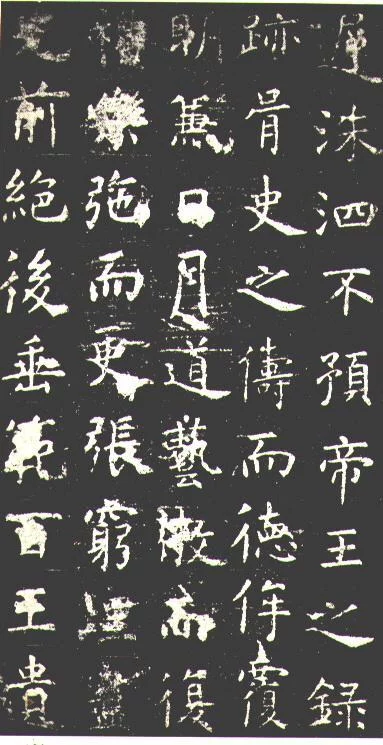 遲洙泗不預帝王之錄
跡胥史之儔而德侔覆
明兼日月道藝微而復
禮樂弛而更張窮理盡
光前絕後垂範百王貴